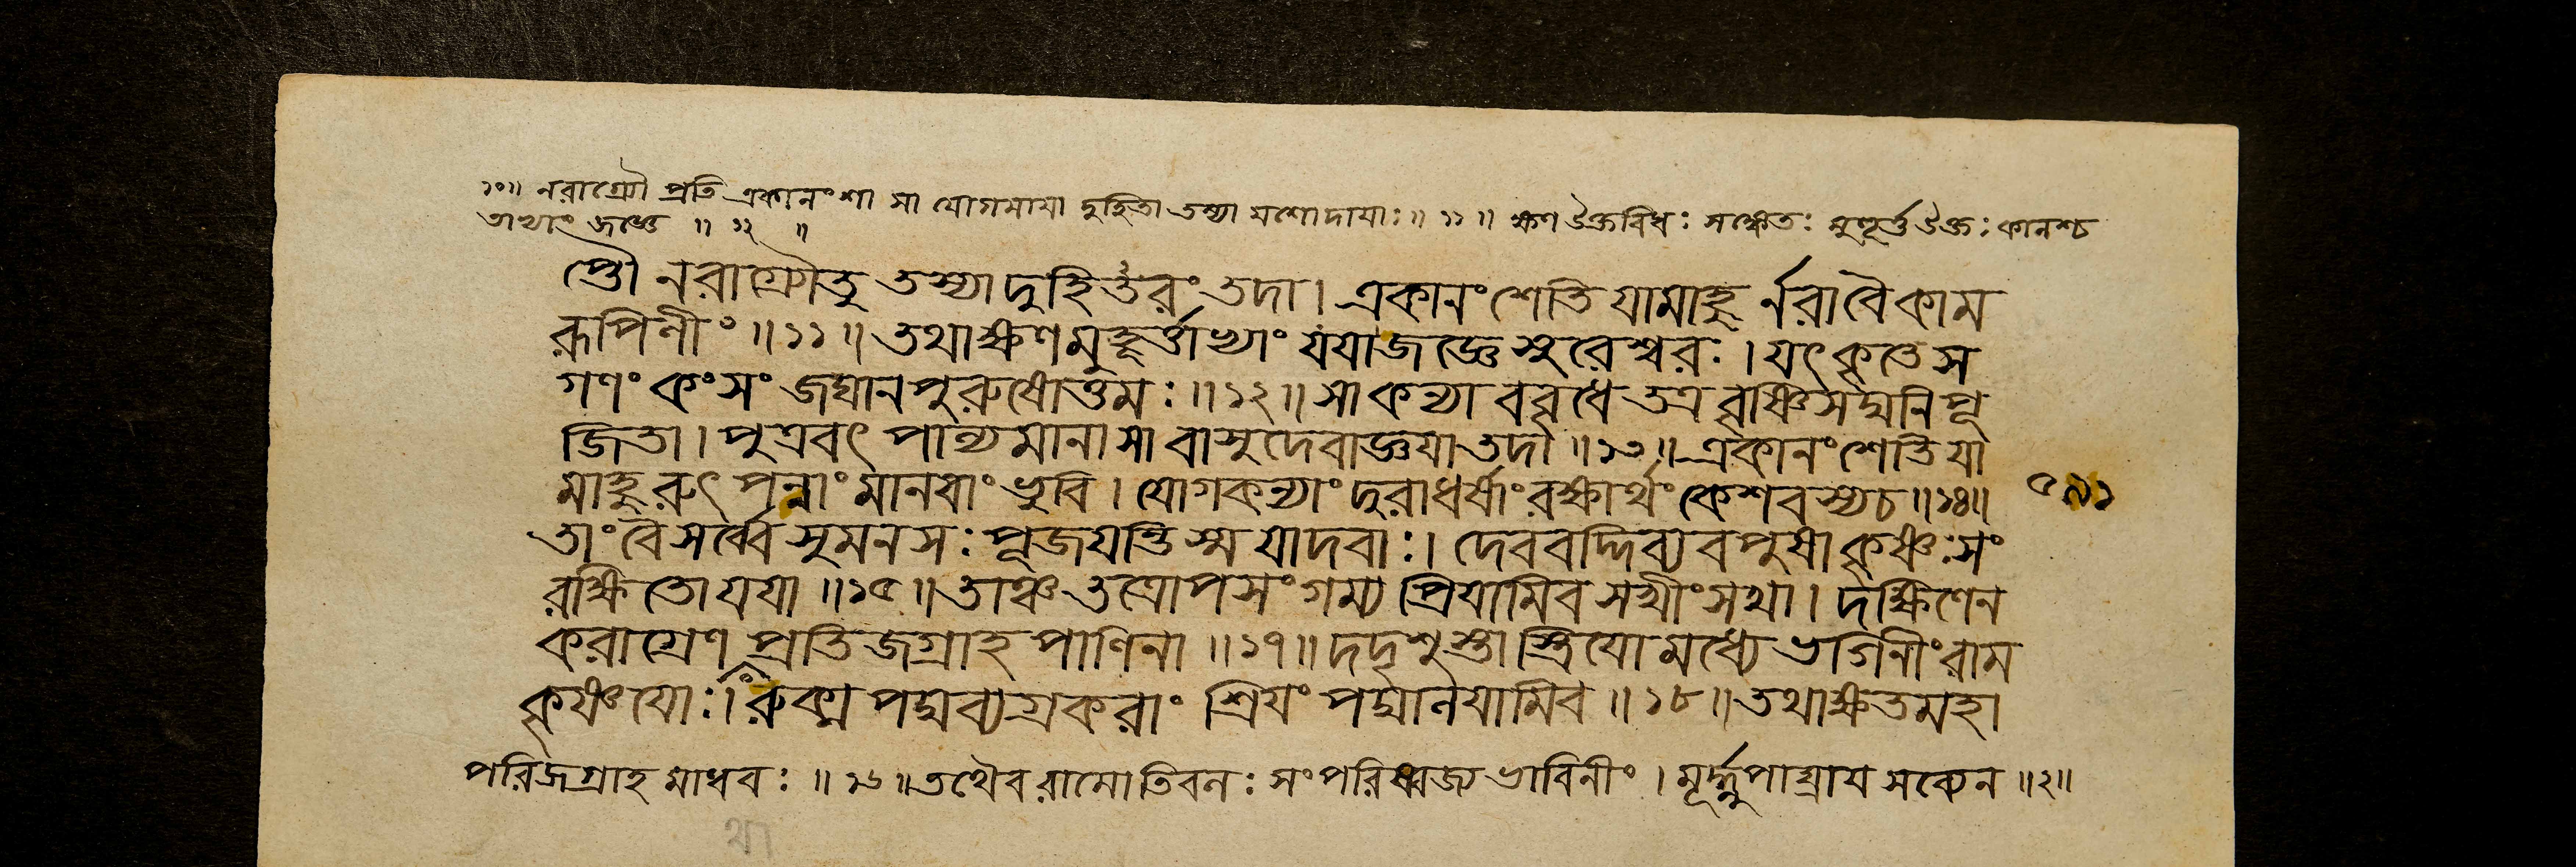 ১০॥ নরাগ্র্যৌ প্রতি একানংশা সা যোগমায়া দুহিতা তস্যা যশোদায়াঃ॥ ১১॥ ক্ষণ উক্তবিধঃ সঙ্কেতঃ মুহূর্ত্ত উক্তঃ কালশ্চ
তাখ্যাং জজ্ঞে ॥ ১২ ॥
প্তৌ নরাগ্র্যৌতু তস্যাদুহিতরং তদা। একানংশেতি যামাহু র্নরাবৈকাম
রূপিনীং॥১১॥ তথাক্ষণমুহূর্ত্তাখ্যাং যযাজজ্ঞে সুরেশ্বরঃ। যৎকৃতে স
গণং কংসং জঘানপুরুষোত্তমঃ॥১২॥ সাকন্যা ববৃধে তত্র বৃষ্ণিসদ্মনিপূ
জিতা। পুত্রবৎ পাল্যমানা সা বাসুদেবাজ্ঞয়াতদা॥১৩॥ একানংশেতি যা
মাহুরুৎপন্নাং মানবাং ভুবি। যোগকন্যাং দুরাধর্ষাং রক্ষার্থং কেশবস্যচ॥১৪॥ ৫৯১
তাংবৈসর্ব্বেসুমনসঃ পূজয়ন্তিস্ম যাদবাঃ। দেববদ্দিব্যবপুষা কৃষ্ণঃ সং
রক্ষিতোযযা॥১৫॥ তাঞ্চ তত্রোপসংগম্য প্রিয়ামিব সখীংসখা। দক্ষিণেন
করাগ্রেণ প্রতিজগ্রাহ পাণিনা॥১৭॥ দদৃশুস্তা স্ত্রিয়োমধ্যে ভগিনীংরাম
কৃষ্ণয়োঃ। রুক্মপদ্মব্যগ্রকরাং শ্রিয়ং পদ্মালয়ামিব॥১৮॥ তথাক্ষতমহা
পরিজগ্রাহ মাধবঃ॥১৬॥ তথৈব রামোতিবলঃ সংপরিষ্বজ্য ভাবিনীং। মূর্দ্ধ্নুপাঘ্রায় সব্যেন॥২॥